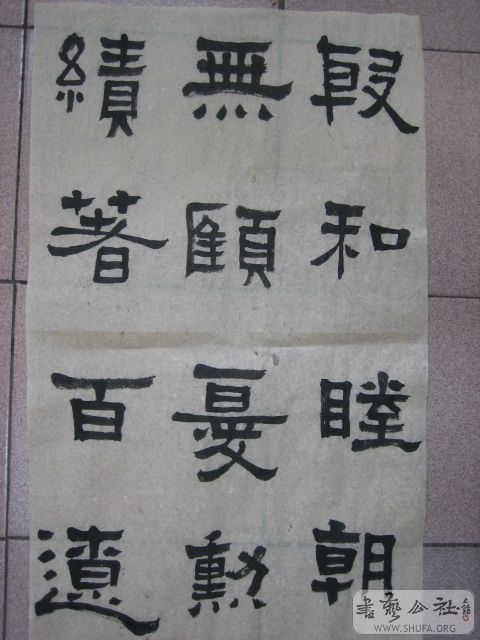 和睦朝
無顧憂勳
績著百遼
書藝公社
WWW.SHUFA.ORG